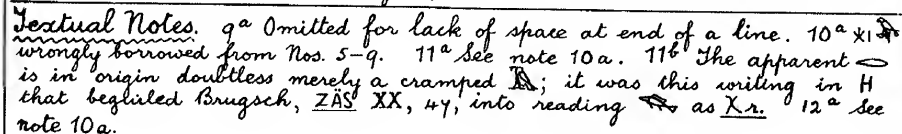 Textual Notes. 9ᵃ Omitted for lack of space at end of a line. 10ᵃ
wrongly borrowed from Nos. 5-9. 11ᵃ See note 10a. 11ᵇ The apparent
is in origin doubtless merely a cramped ; it was this writing in H
that beguiled Brugsch, ZÄS XX, 47, into reading as Xr. 12ᵃ See
note 10a.